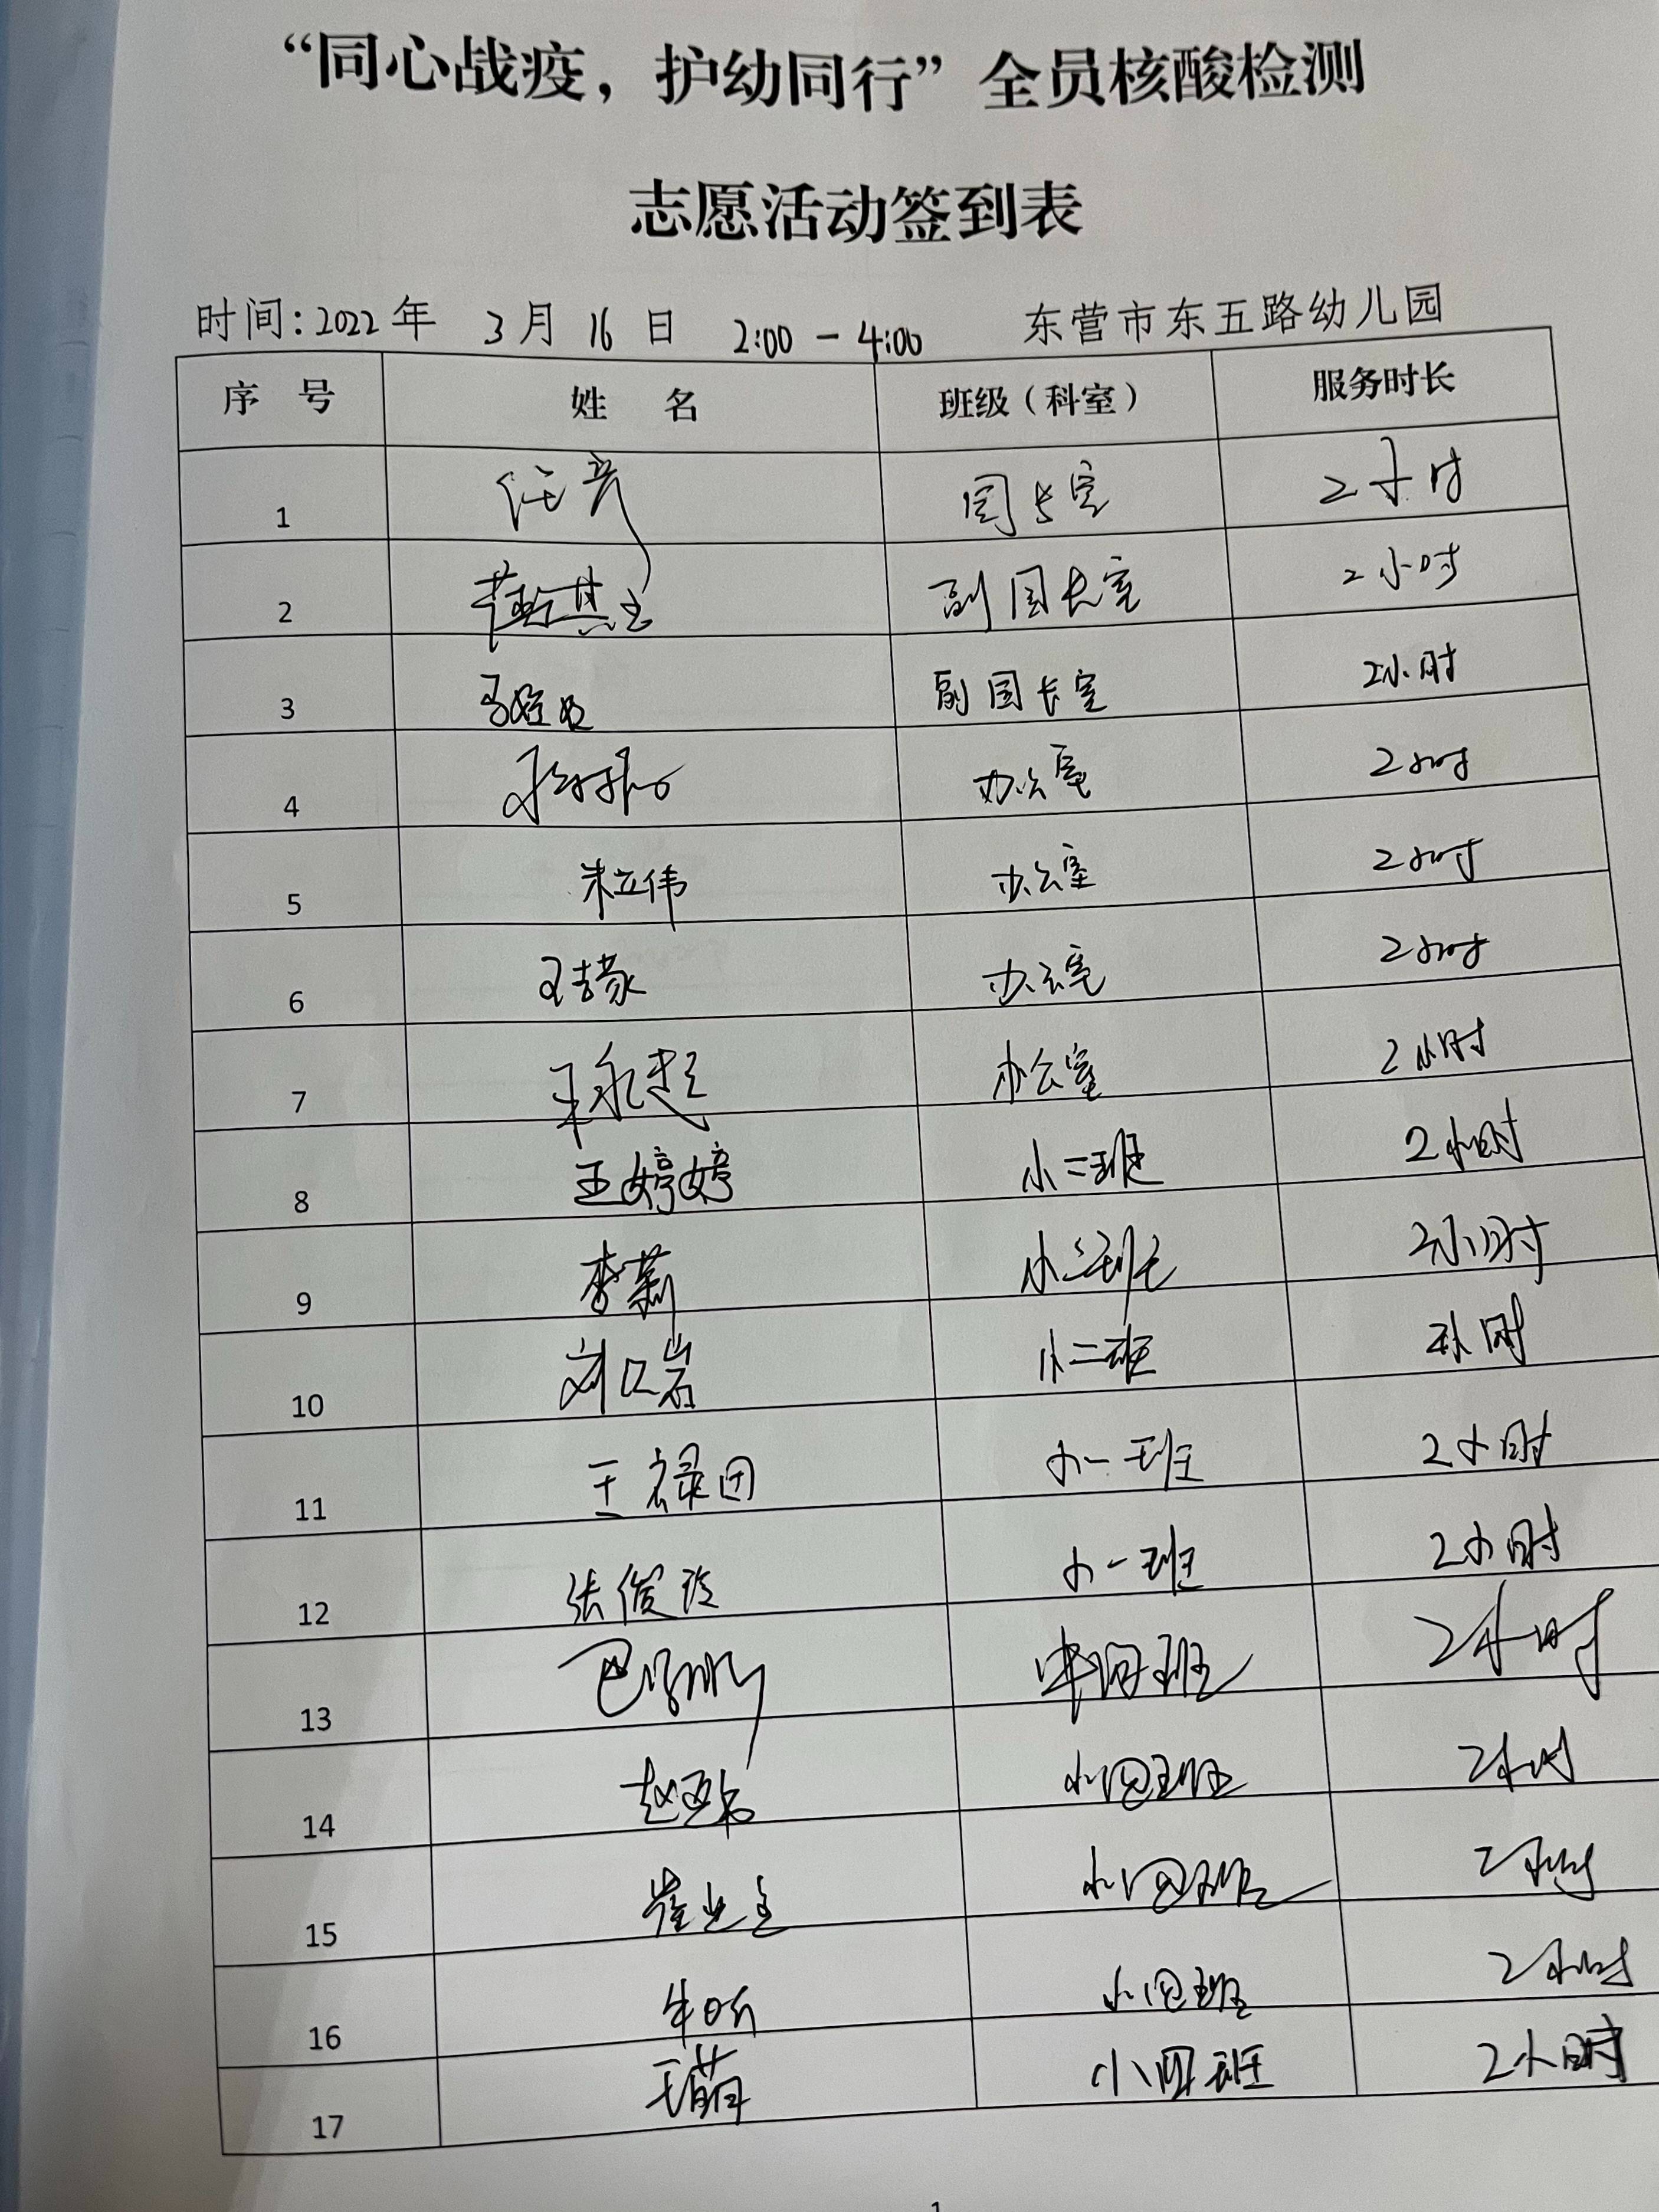 “同心战疫，护幼同行”全员核酸检测
志愿活动签到表
时间：2022年 3月 16日 2:00 - 4:00 东营市东五路幼儿园
序号 姓名 班级（科室） 服务时长
1 任彦 园长室 2小时
2 副园长室 2小时
3 副园长室 2小时
4 办公室 2小时
5 朱立伟 办公室 2小时
6 办公室 2小时
7 王永超 办公室 2小时
8 王婷婷 小二班 2小时
9 李莉 小二班 2小时
10 小二班 2小时
11 王禄田 小一班 2小时
12 张俊玲 小一班 2小时
13 班 2小时
14 小四班 2小时
15 小四班 2小时
16 牛昕 小四班 2小时
17 王萌 小四班 2小时
1